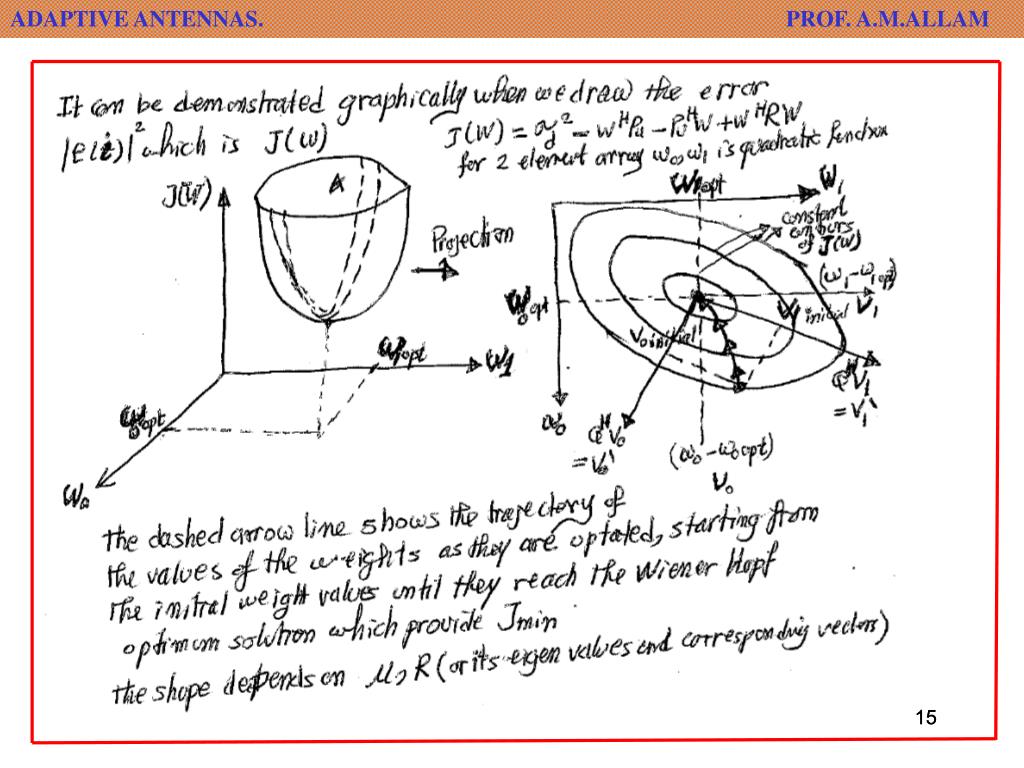 ADAPTIVE ANTENNAS. PROF. A.M.ALLAM
It can be demonstrated graphically when we draw the error
|e(i)|² which is J(W)
J(W) = σd² - WᴴPu - PuᴴW + WᴴRW
for 2 element array w0, w1 is quadratic function
J(W)
A
Projection
W1
W1opt
W0opt
W0
W1opt
W1
constant
contours
of J(W)
(w1-w1opt)
V1
W0opt
V1 initial
V0 initial
w0
V0
= V0'
V1
= V1'
(w0-w0opt)
V0
the dashed arrow line shows the trajectory of
the values of the weights as they are optated, starting from
the initial weight values until they reach the Wiener Hopf
optimum solution which provide Jmin
the shape depends on μ, R (or its eigen values and corresponding vectors)
15